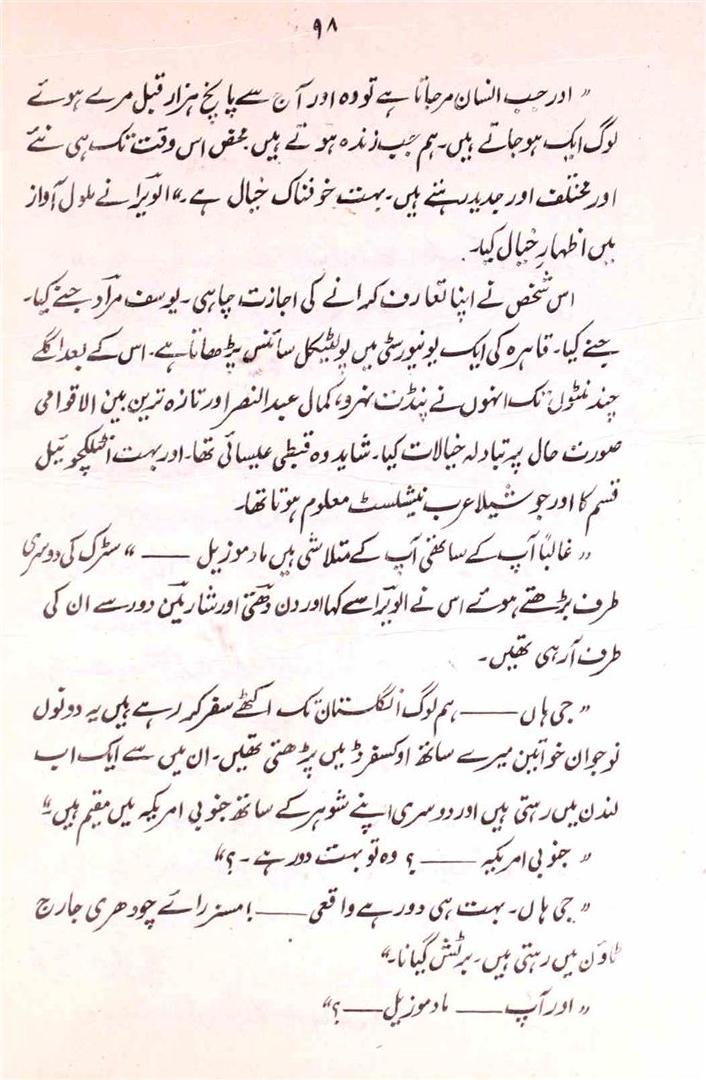 ۹۸
" اور جب انسان مرجاتا ہے تو وہ اور آج سے پانچ ہزار قبل مرے ہوئے
لوگ ایک ہو جاتے ہیں۔ ہم جب زندہ ہوتے ہیں محض اس وقت تک ہی نئے
اور مختلف اور جدید رہتے ہیں۔ بہت خوفناک خیال ہے۔" الویرا نے ملول آواز
میں اظہارِ خیال کیا۔
اس شخص نے اپنا تعارف کرانے کی اجازت چاہی۔ یوسف مراد جئے کیا۔
جئے کیا۔ قاہرہ کی ایک یونیورسٹی میں پولٹیکل سائنس پڑھاتا ہے۔ اس کے بعد اگلے
چند منٹوں تک انہوں نے پنڈت نہرو، کمال عبدالنصر اور تازہ ترین بین الاقوامی
صورت حال پہ تبادلہ خیالات کیا۔ شاید وہ قبطی عیسائی تھا۔ اور بہت انٹلکچوئیل
قسم کا اور جوشیلا عرب نیشلسٹ معلوم ہوتا تھا۔
" غالباً آپ کے ساتھی آپ کے متلاشی ہیں مادموزیل —— " سڑک کی دوسری
طرف بڑھتے ہوئے اس نے الویرا سے کہا اور دن دھتی اور شاریکن دور سے ان کی
طرف آ رہی تھیں۔
" جی ہاں —— ہم لوگ انگلستان تک اکٹھے سفر کر رہے ہیں یہ دونوں
نوجوان خواتین میرے ساتھ اوکسفرڈ میں پڑھتی تھیں۔ ان میں سے ایک اب
لندن میں رہتی ہیں اور دوسری اپنے شوہر کے ساتھ جنوبی امریکہ میں مقیم ہیں۔"
" جنوبی امریکہ —— ؟ وہ تو بہت دور ہے۔؟"
" جی ہاں۔ بہت ہی دور ہے واقعی —— ! مسز رائے چودھری جارج
ٹاؤن میں رہتی ہیں۔ برٹش گیانا۔"
" اور آپ —— مادموزیل —— ؟"